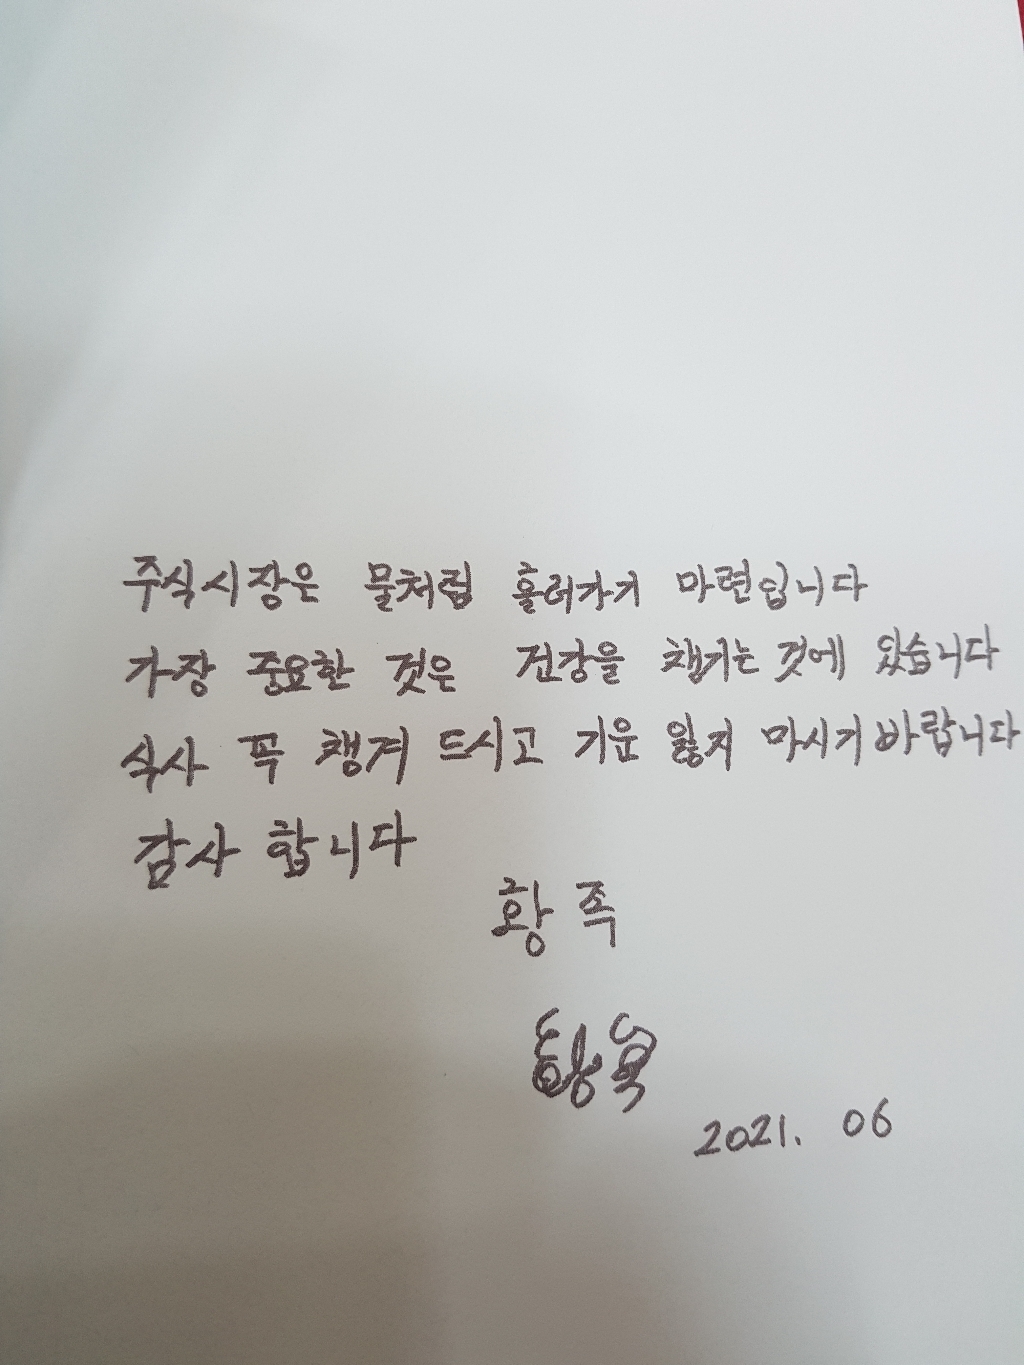 주식시장은 물처럼 흘러가기 마련입니다
가장 중요한 것은 건강을 챙기는 것에 있습니다
식사 꼭 챙겨 드시고 기운 잃지 마시기 바랍니다
감사 합니다
황족
2021. 06